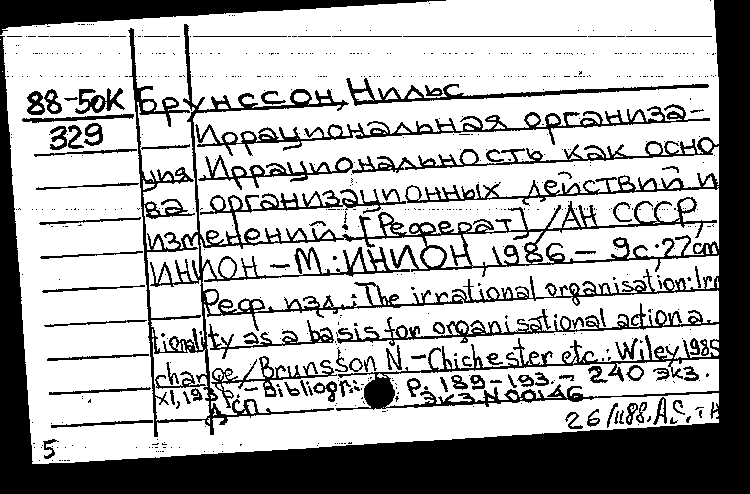 88-50К Брунссон, Нильс
329 Иррациональная организа-
ция. Иррациональность как осно
ва организационных действий и
изменений: [Реферат] / АН СССР,
ИНИОН – М.: ИНИОН, 1986. – 9с; 27cm
Реф. изд.: The irrational organisation: Irra
tionality as a basis for organisational action a.
change / Brunsson N. – Chichester etc.: Wiley, 1985
XI, 193 p. – Bibliogr.: p. 189–193. – 240 экз.
ЭКЗ.N00146
26/II88. А.С.
5